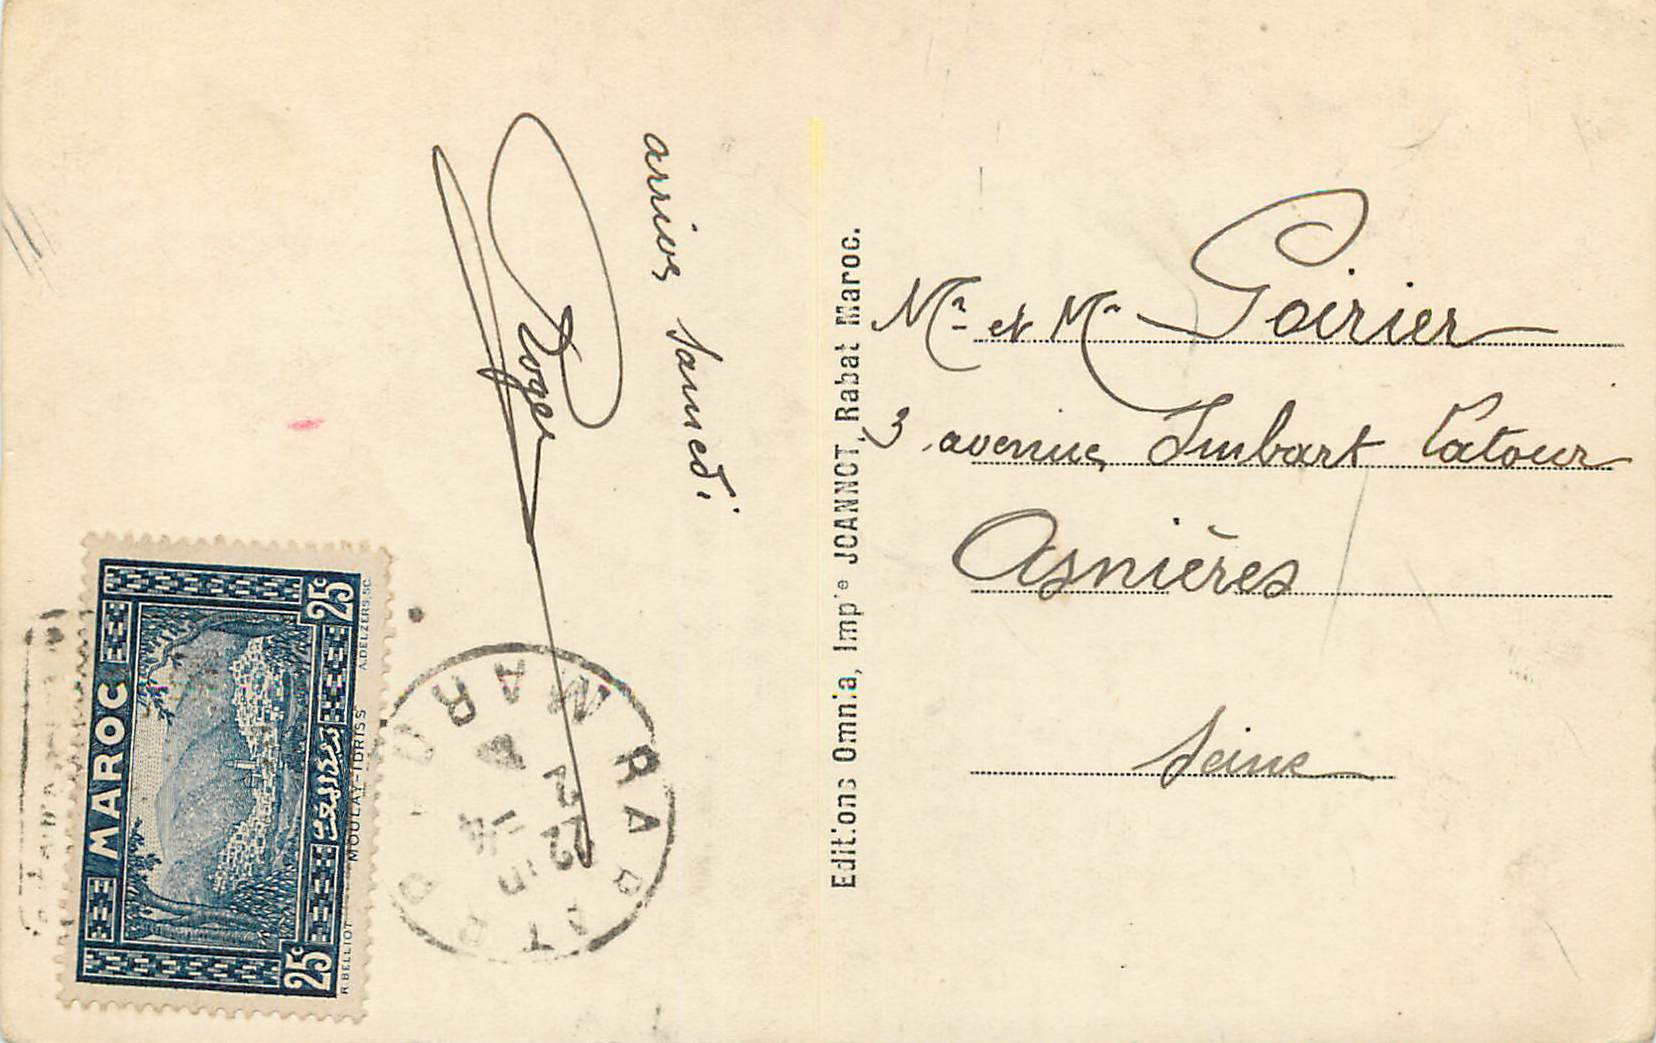 arrive Samedi
Roger
Editions Omnia, Impie JOANNOT, Rabat Maroc.
Mr et Me Poirier
3 avenue Imbart Latour
Asnières
Seine
MAROC
25c
25c
MOULAY-IDRISS
R. BELLIOT
A. DELZERS. SC.
RABAT R.P.
MAROC